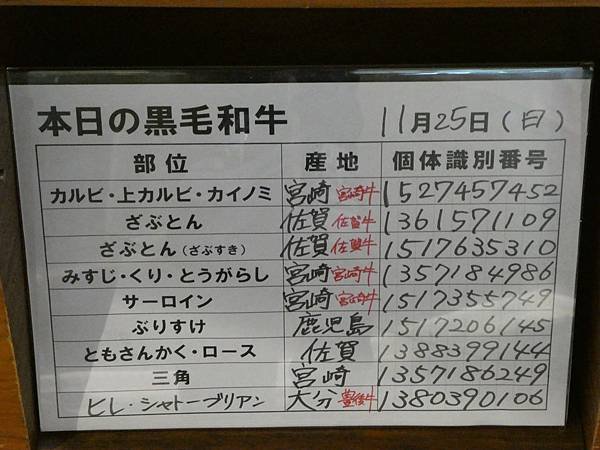 本日の黒毛和牛 11月25日(日)
部位 産地 個体識別番号
カルビ・上カルビ・カイノミ 宮崎 宮崎牛 1527457452
ざぶとん 佐賀 佐賀牛 1361571109
ざぶとん(ざぶすき) 佐賀 佐賀牛 1517635310
みすじ・くり・とうがらし 宮崎 宮崎牛 1357184986
サーロイン 宮崎 宮崎牛 1517355749
ぶりすけ 鹿児島 1517206145
ともさんかく・ロース 佐賀 1388399144
三角 宮崎 1357186249
ヒレ・シャトーブリアン 大分 豊後牛 1380390106